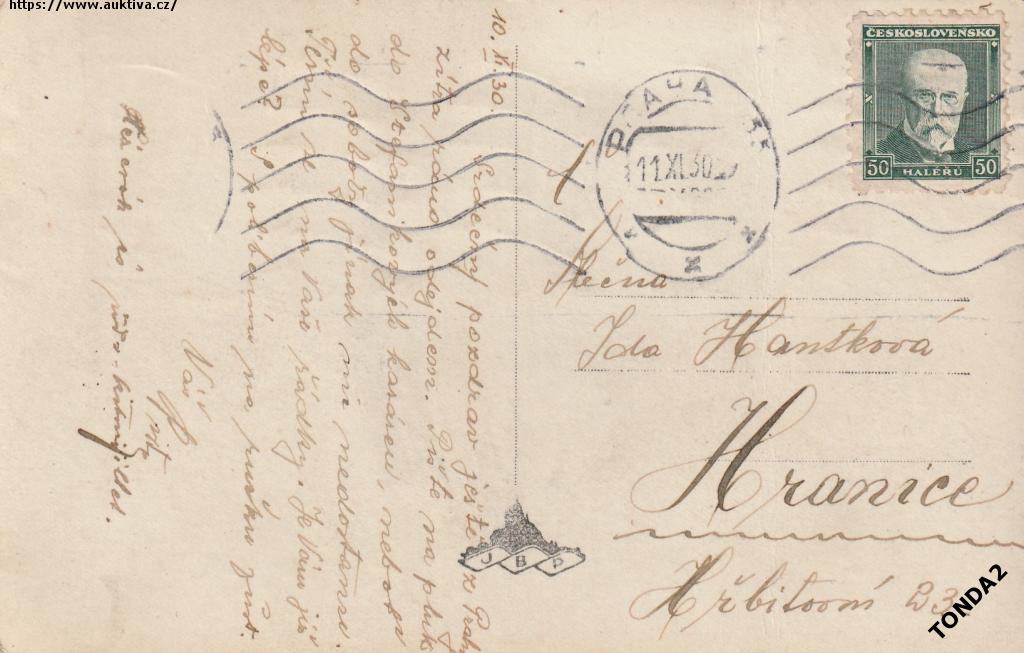 https://www.auktiva.cz/
10. XI. 30.
Srdečný pozdrav ještě z Prahy
zítra ráno odejdem. Pište na pluk
do Štefanikových kasáren, neboť
do soboty jinak mi nedostanu
Těším se na Vaše řádky. Je Vám již
lépe? S políbením na ručku
Váš
ČESKOSLOVENSKO
50 HALÉŘŮ 50
PRAHA
11.XI.30
Slečna
Ida Hanšková
Hranice
Hřbitovní 23
J B P
TONDA2